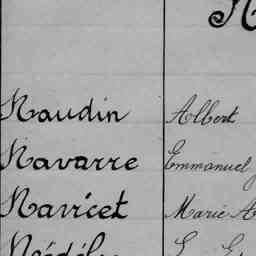 N
Naudin Albert
Navarre Emmanuel
Navicet Marie A